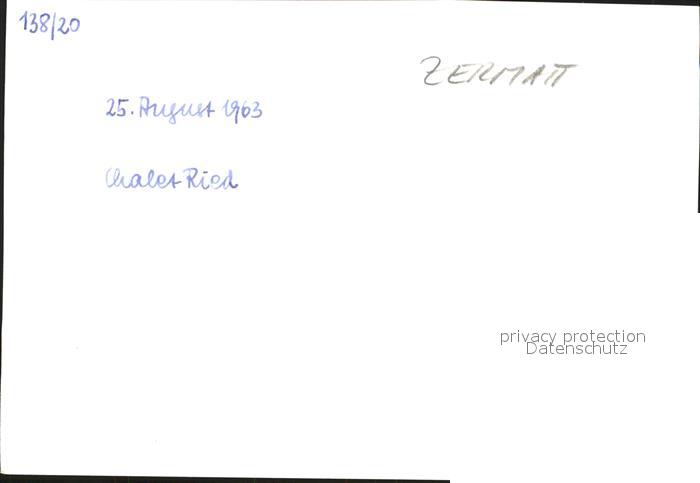 138/20
ZERMATT
25. August 1963
Chalet Ried
privacy protection
Datenschutz